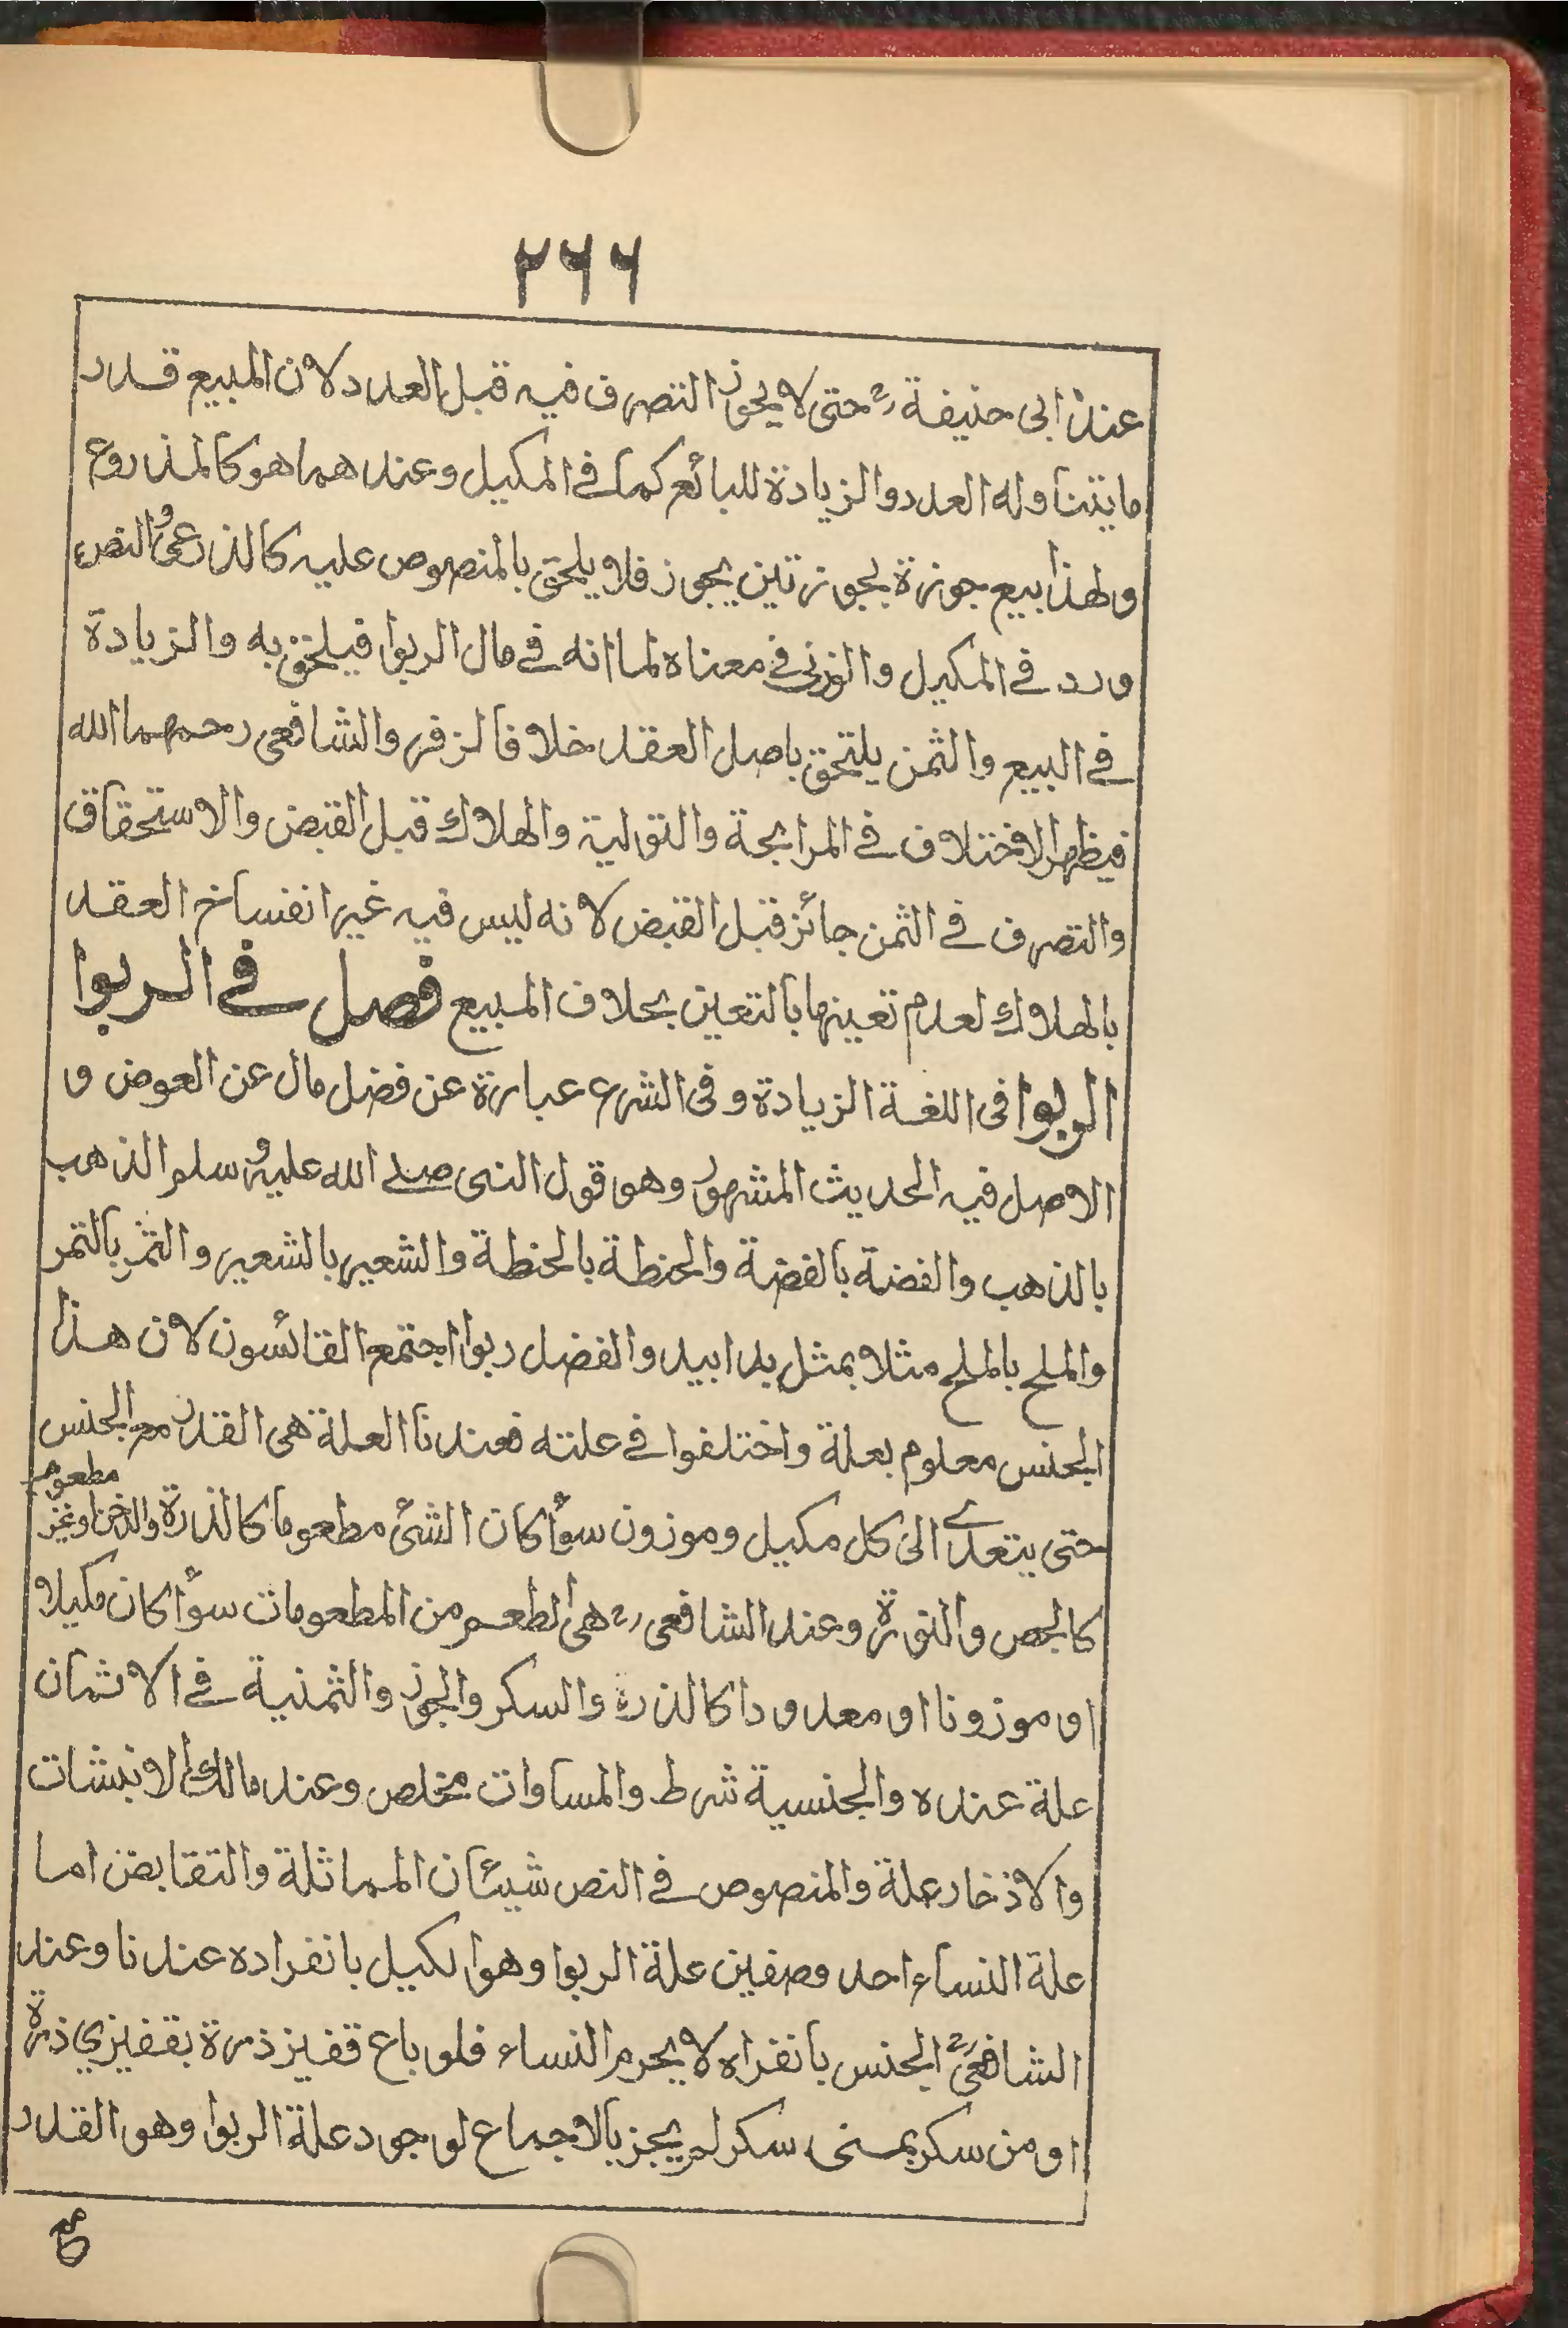 ٢٦٦
عند ابى حنيفة رح حتى لا يجوز التصرف فيه قبل العدد لان المبيع قدر
ما يتناوله العدد والزيادة للبائع كما فى المكيل وعندهما هو كالمذروع
ولهذا بيع جوزة بجوزتين يجوز فلا يلحق بالمنصوص عليه كالذرعى والنص
ورد فى المكيل والوزنى فى معناه لما انه فى مال الربوا فيلحق به والزيادة
فى البيع والثمن يلتحق باصل العقد خلافا لزفر والشافعى رحمهما الله
فيظهر الاختلاف فى المرابحة والتولية والهلاك قبل القبض والاستحقاق
والتصرف فى الثمن جائز قبل القبض لانه ليس فيه غير انفساخ العقد
بالهلاك لعدم تعينها بالتعين بخلاف المبيع فصل فى الربوا
الربوا فى اللغة الزيادة وفى الشرع عبارة عن فضل مال عن العوض و
الاصل فيه الحديث المشهور وهو قول النبى صلى الله عليه وسلم الذهب
بالذهب والفضة بالفضة والحنطة بالحنطة والشعير بالشعير والتمر بالتمر
والملح بالملح مثلا بمثل يدا بيد والفضل ربوا اجتمع القائسون لان هذا
الجنس معلوم بعلة واختلفوا فى علته فعندنا العلة هى القدر مع الجنس
حتى يتعدى الى كل مكيل وموزون سواء كان الشئ مطعوما كالذرة والدخن او غير مطعوم
كالجص والنورة وعند الشافعى رح هى الطعم من المطعومات سواء كان مكيلا
او موزونا او معدودا كالذرة والسكر والجوز والثمنية فى الاثمان
علة عنده والجنسية شرط والمساوات مخلص وعند مالك الانبشات
والاذخار علة والمنصوص فى النص شيئان المماثلة والتقابض اما
علة النساء احد وصفين علة الربوا وهو الكيل بانفراده عندنا وعند
الشافعى رح الجنس بانفراه لا يحرم النساء فلو باع قفيز ذرة بقفيزي ذرة
او من سكر بمنى سكر لم يجز بالاجماع لوجود علة الربوا وهو القدر
مع